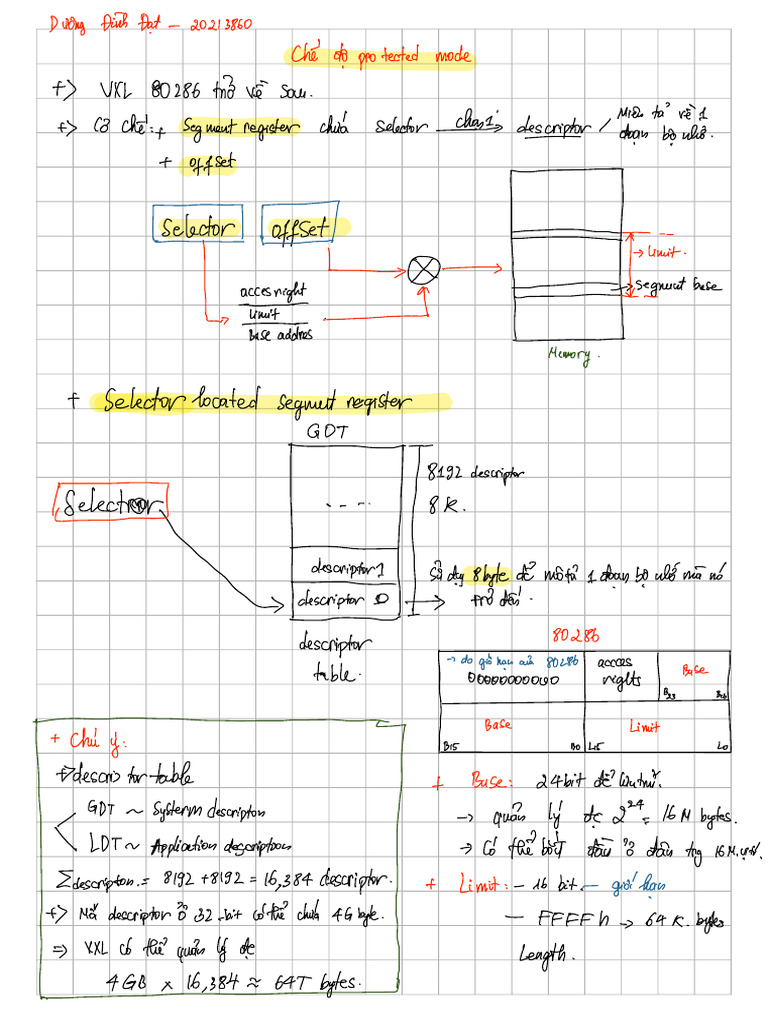 Dương Đình Đạt — 20213860
Chế độ protected mode
+> VXL 80286 trở về sau.
+> Cơ chế: + Segment register chứa Selector chọn 1 descriptor / Miêu tả về 1 đoạn bộ nhớ.
+ offset
Selector offSet
acces right
limit
Base addres
→ limit
→ segment base
Memory.
+ Selector located segment register
GDT
8192 descriptor
8K.
Selector
- - - -
descriptor 1
descriptor 0
Sử dụg 8 byte để mô tả 1 đoạn bộ nhớ mà nó
trỏ đến.
descriptor
table.
80286
→ do giới hạn của 80286
00000000000
acces
rights
Base
B23 B16
Base
B15 B0
Limit
L15 L0
+ Chú ý:
+> descriptor table
GDT ~ System descriptors
LDT ~ Application descriptors
Σdescriptors = 8192 + 8192 = 16,384 descriptor.
+> Mỗi descriptor ở 32-bit có thể chứa 4G byte.
=> VXL có thể quản lý đc
4GB x 16,384 ≈ 64T bytes.
+ Base: 24 bit để lưu trữ.
→ quản lý đc 2^24 = 16 M bytes.
→ Có thể bắt đầu ở đâu trg 16M
+ Limit: — 16 bit. — giới hạn
— FFFFh → 64 K. bytes
Length.